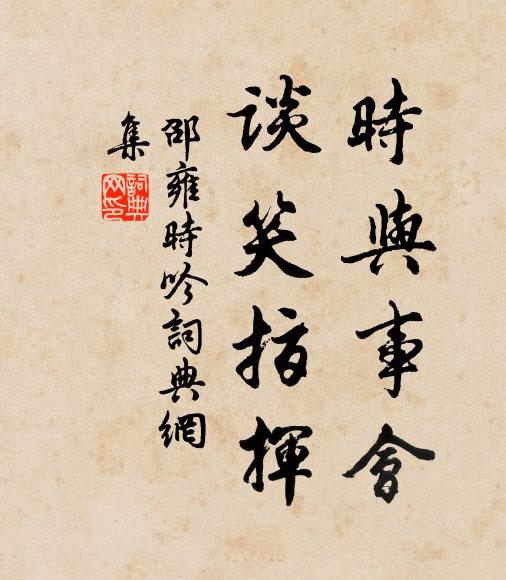 時與事會
談笑指揮
邵雍時吟詞典網
集
詞典
网印